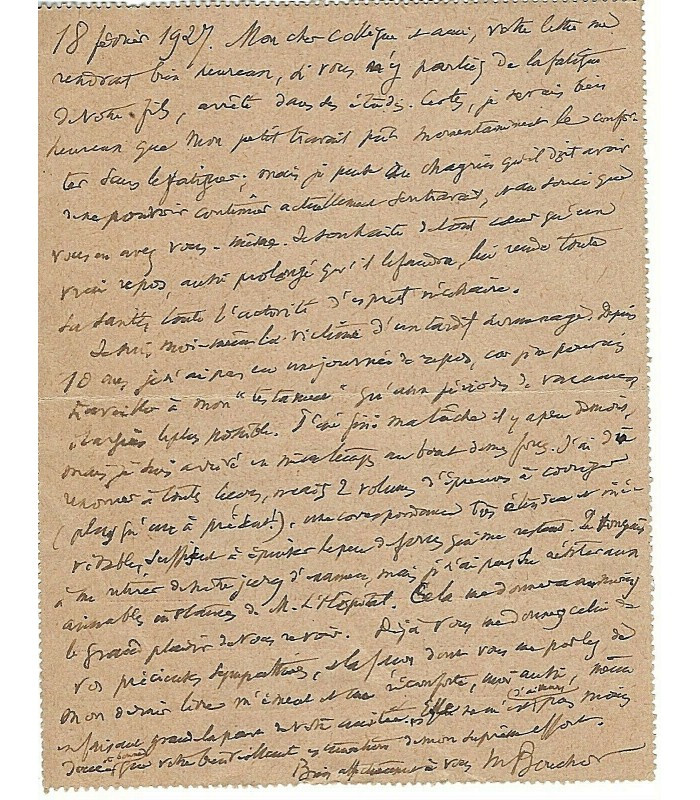 18 février 1927. Mon cher collègue et ami, votre lettre me
rendrait bien heureux, si vous n'y parliez de la fatigue
de votre fils, arrêté dans ses études. Certes, je serais bien
heureux que mon petit travail pût momentanément le confor-
ter sans le fatiguer; mais je pense au chagrin qu'il doit avoir
de ne pouvoir continuer actuellement son travail, et au souci que
vous en avez vous-même. Je souhaite de tout cœur qu'un
vrai repos, aussi prolongé qu'il le faudra, lui rende toute
sa santé, toute l'activité d'esprit nécessaire.
Je suis moi-même la victime d'un tardif surmenage. Depuis
10 ans, je n'ai pas eu une journée de repos, car je ne pouvais
travailler à mon "testament" qu'aux périodes de vacances
élargies le plus possible. J'ai fini ma tâche il y a peu de mois,
mais je suis arrivé en même temps au bout de mes forces. J'ai dû
renoncer à toute leçon, mais 2 volumes d'épreuves à corriger
(plus qu'un à présent!), une correspondance très étendue et iné-
vitable, suffisent à épuiser le peu de forces qui me restent. Je songeais
à me retirer de notre jury d'examen, mais je n'ai pas pu résister aux
aimables instances de M. L'Hopital. Cela me donnera au moins
le grand plaisir de vous revoir. Déjà vous me donnez celui de
vos précieuses sympathies, et la façon dont vous me parlez de
mon dernier livre m'émeut et me réconforte, moi aussi, même
en faisant grande la part de votre amitié. Elle ne m'est pas moins
douce que votre bienveillant de mon suprême effort.
Bien affectueusement à vous M Bouchor